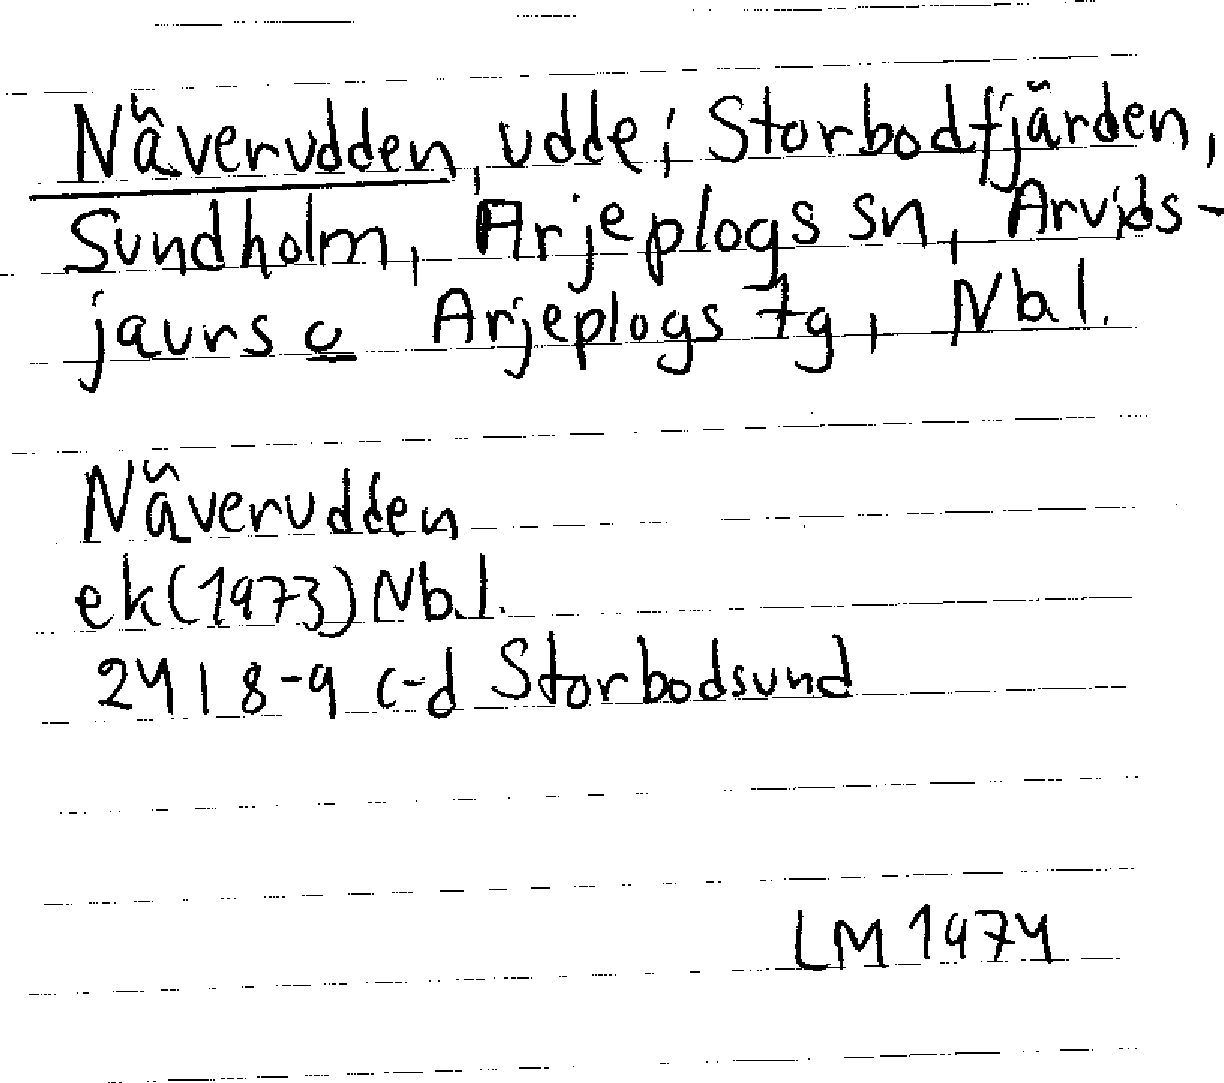 Näverudden, udde i Storbodfjärden,
Sundholm, Arjeplogs sn, Arvids-
jaurs o Arjeplogs tg, Nbl.
Näverudden
ek (1973) Nbl.
24 I 8-9 c-d Storbodsund
LM 1974